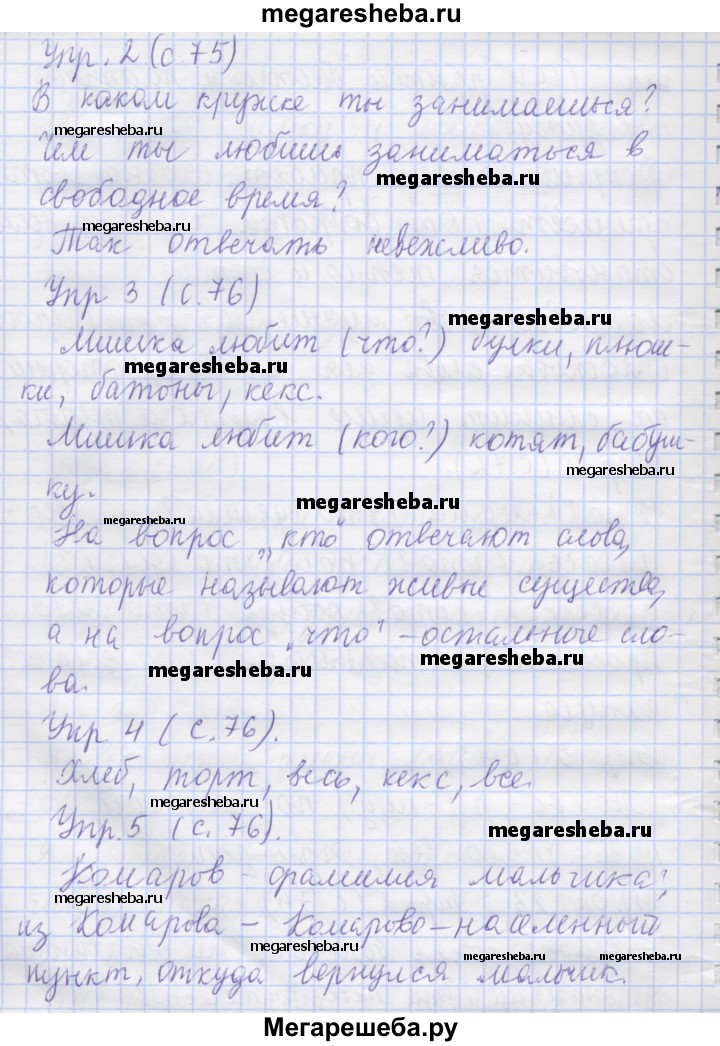 megaresheba.ru
Упр. 2 (с 75)
В каком кружке ты занимаешься?
megaresheba.ru
Чем ты любишь заниматься в
megaresheba.ru
свободное время?
megaresheba.ru
Так отвечать невежливо.
Упр 3 (с.76)
megaresheba.ru
Мишка любит (что?) булки, плюш-
megaresheba.ru
ки, батоны, кекс.
Мишка любит (кого?) котят, бабуш-
megaresheba.ru
ку.
megaresheba.ru
megaresheba.ru
На вопрос „кто" отвечают слова,
которые называют живые существа,
а на вопрос „что" - остальные сло-
megaresheba.ru
megaresheba.ru
ва.
Упр 4 (с.76).
Хлеб, торт, весь, кекс, все.
megaresheba.ru
Упр.5 (с.76).
megaresheba.ru
Комаров - фамилия мальчика;
megaresheba.ru
из Комарова - Комарово - населенный
megaresheba.ru
megaresheba.ru
megaresheba.ru
пункт, откуда вернулся мальчик.
Мегарешеба.ру